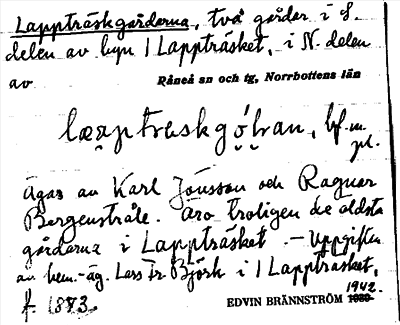 Lappträskgårdarna, två gårdar i S.
delen av byn 1 Lappträsket, i N. delen
av Råneå sn och tg, Norrbottens län
bf. m
pl.
Ägas av Karl Jonsson och Ragnar
Bergenstråle. Äro troligen de äldsta
gårdarna i Lappträsket. – Uppgiften
av hem.-äg. Lars Fr. Björk i 1 Lappträsket,
f. 1873.
EDVIN BRÄNNSTRÖM 1942.